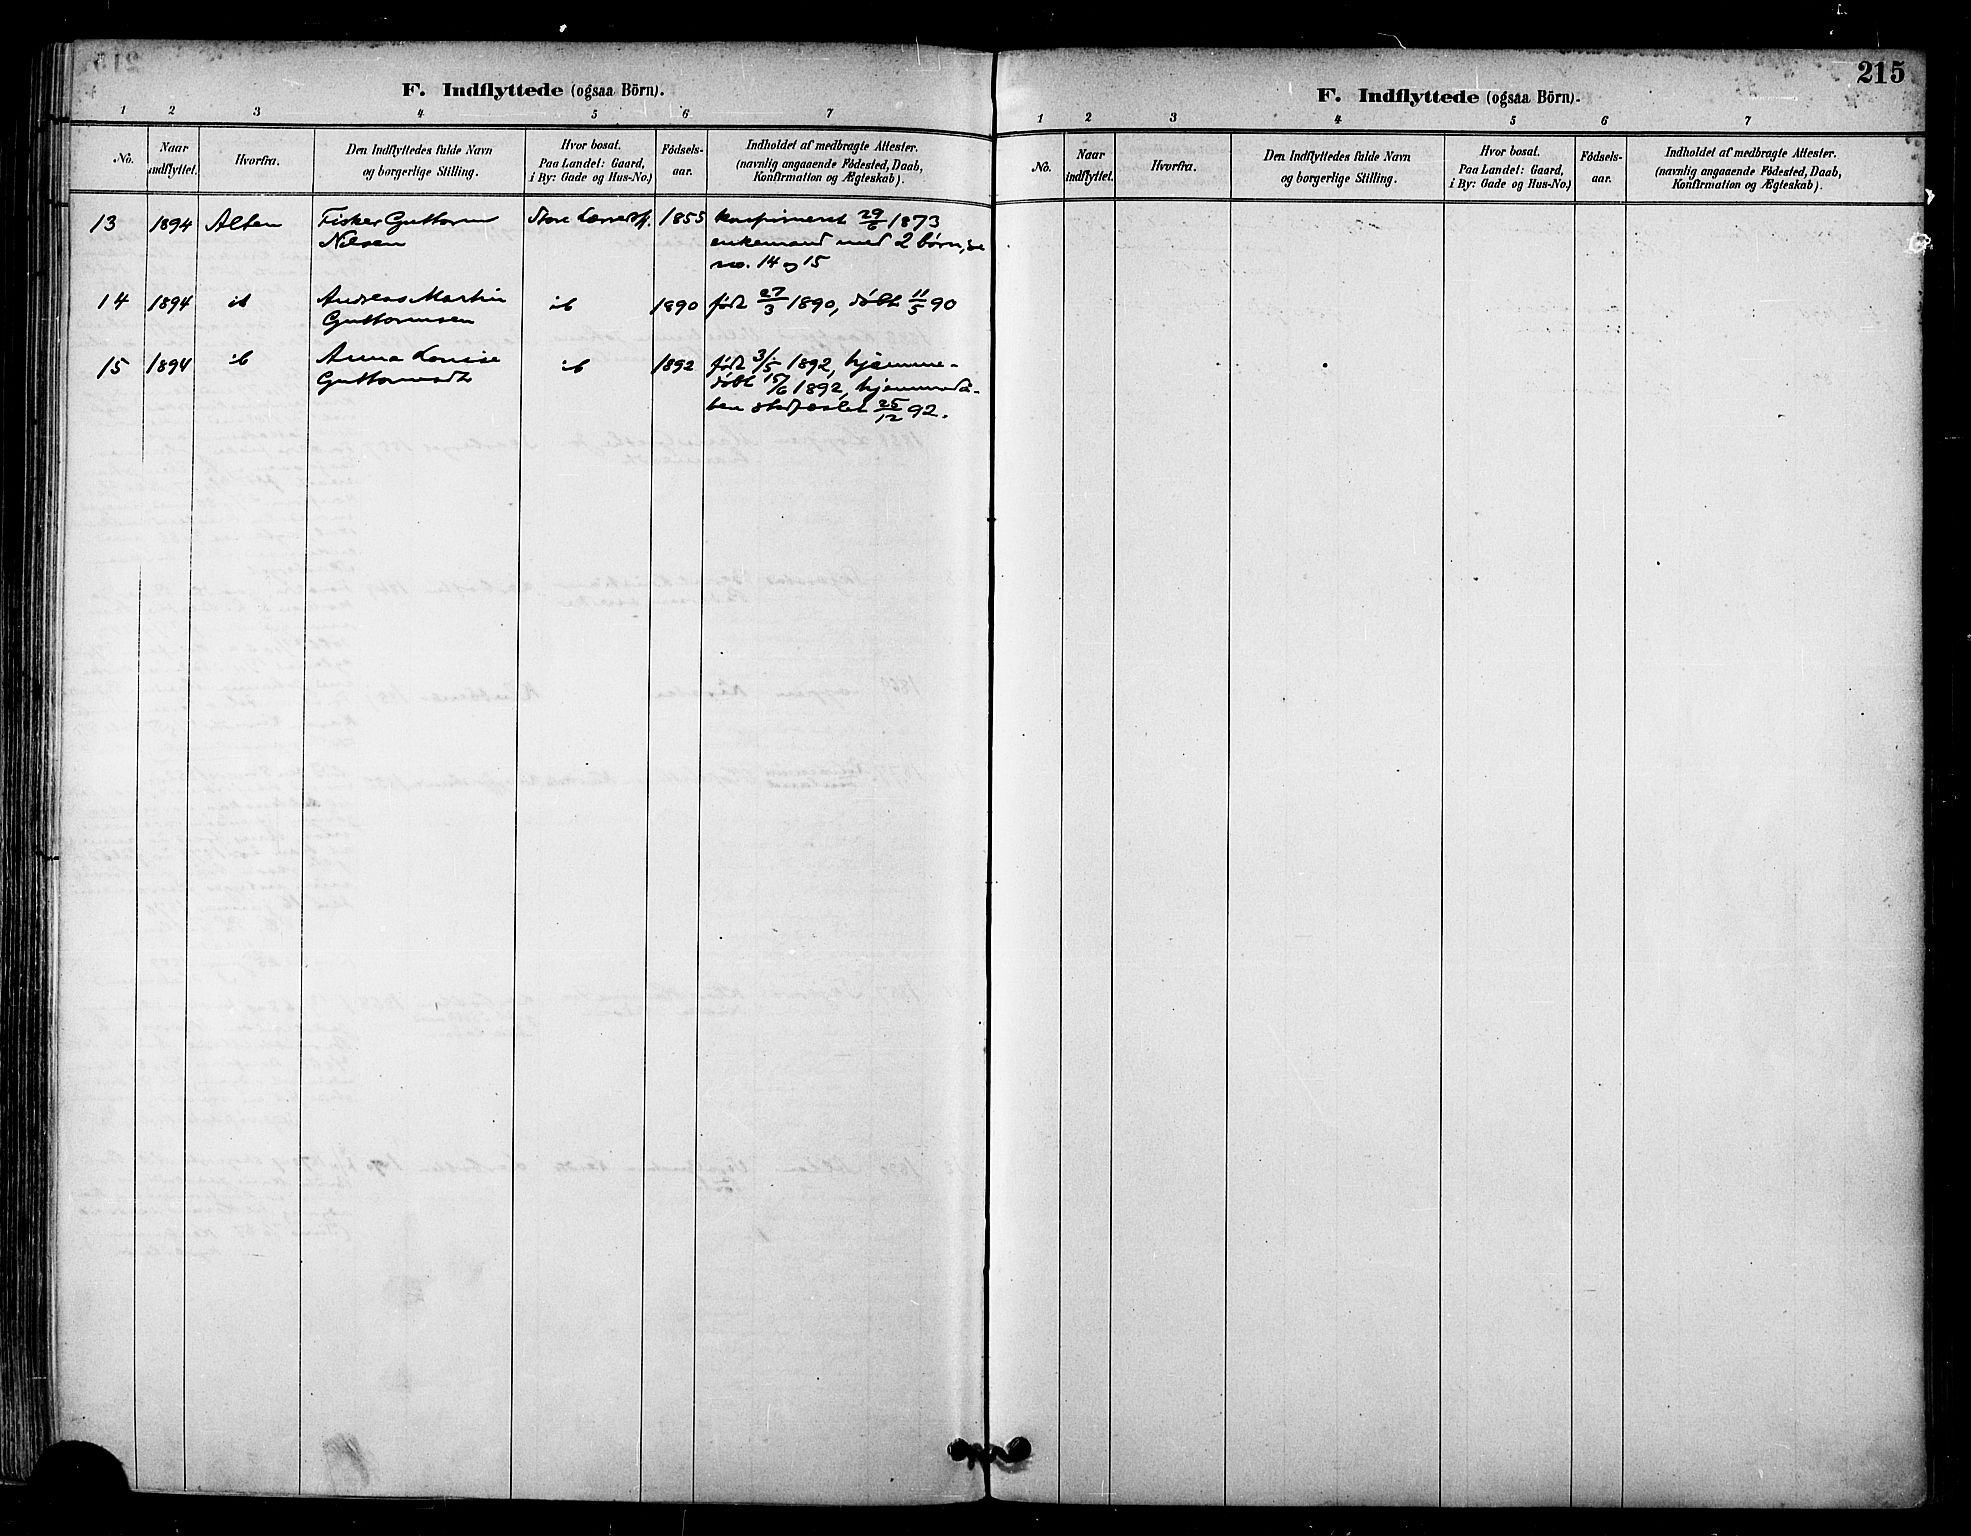 F. Indflyttede (ogsaa Börn).
1 2 3 4 5 6 7
No. Naar indflyttet. Hvorfra. Den Indflyttedes fulde Navn og borgerlige Stilling. Hvor bosat. Paa Landet: Gaard, i By: Gade og Hus-No.) Födsels-aar. Indholdet af medbragte Attester. (navnlig angaaende Födested, Daab, Konfirmation og Ægteskab).
13 1894 Alten Fisker Guttorm Store 1855 konfirmeret 29/6 1873
Nilsen enkemand med 2 börn, se
no. 14 og 15
14 1894 ib Andreas Martin ib 1890 født 27/3 1890, døbt 11/5 90
Guttormsen
15 1894 ib Anna Lovise ib 1892 født 3/5 1892, hjemme-
Guttormsdt døbt 15/6 1892, hjemmedå-
ben stadfæstet 25/12 92.
215
F. Indflyttede (ogsaa Börn).
1 2 3 4 5 6 7
No. Naar indflyttet. Hvorfra. Den Indflyttedes fulde Navn og borgerlige Stilling. Hvor bosat. Paa Landet: Gaard, i By: Gade og Hus-No.) Födsels-aar. Indholdet af medbragte Attester. (navnlig angaaende Födested, Daab, Konfirmation og Ægteskab).